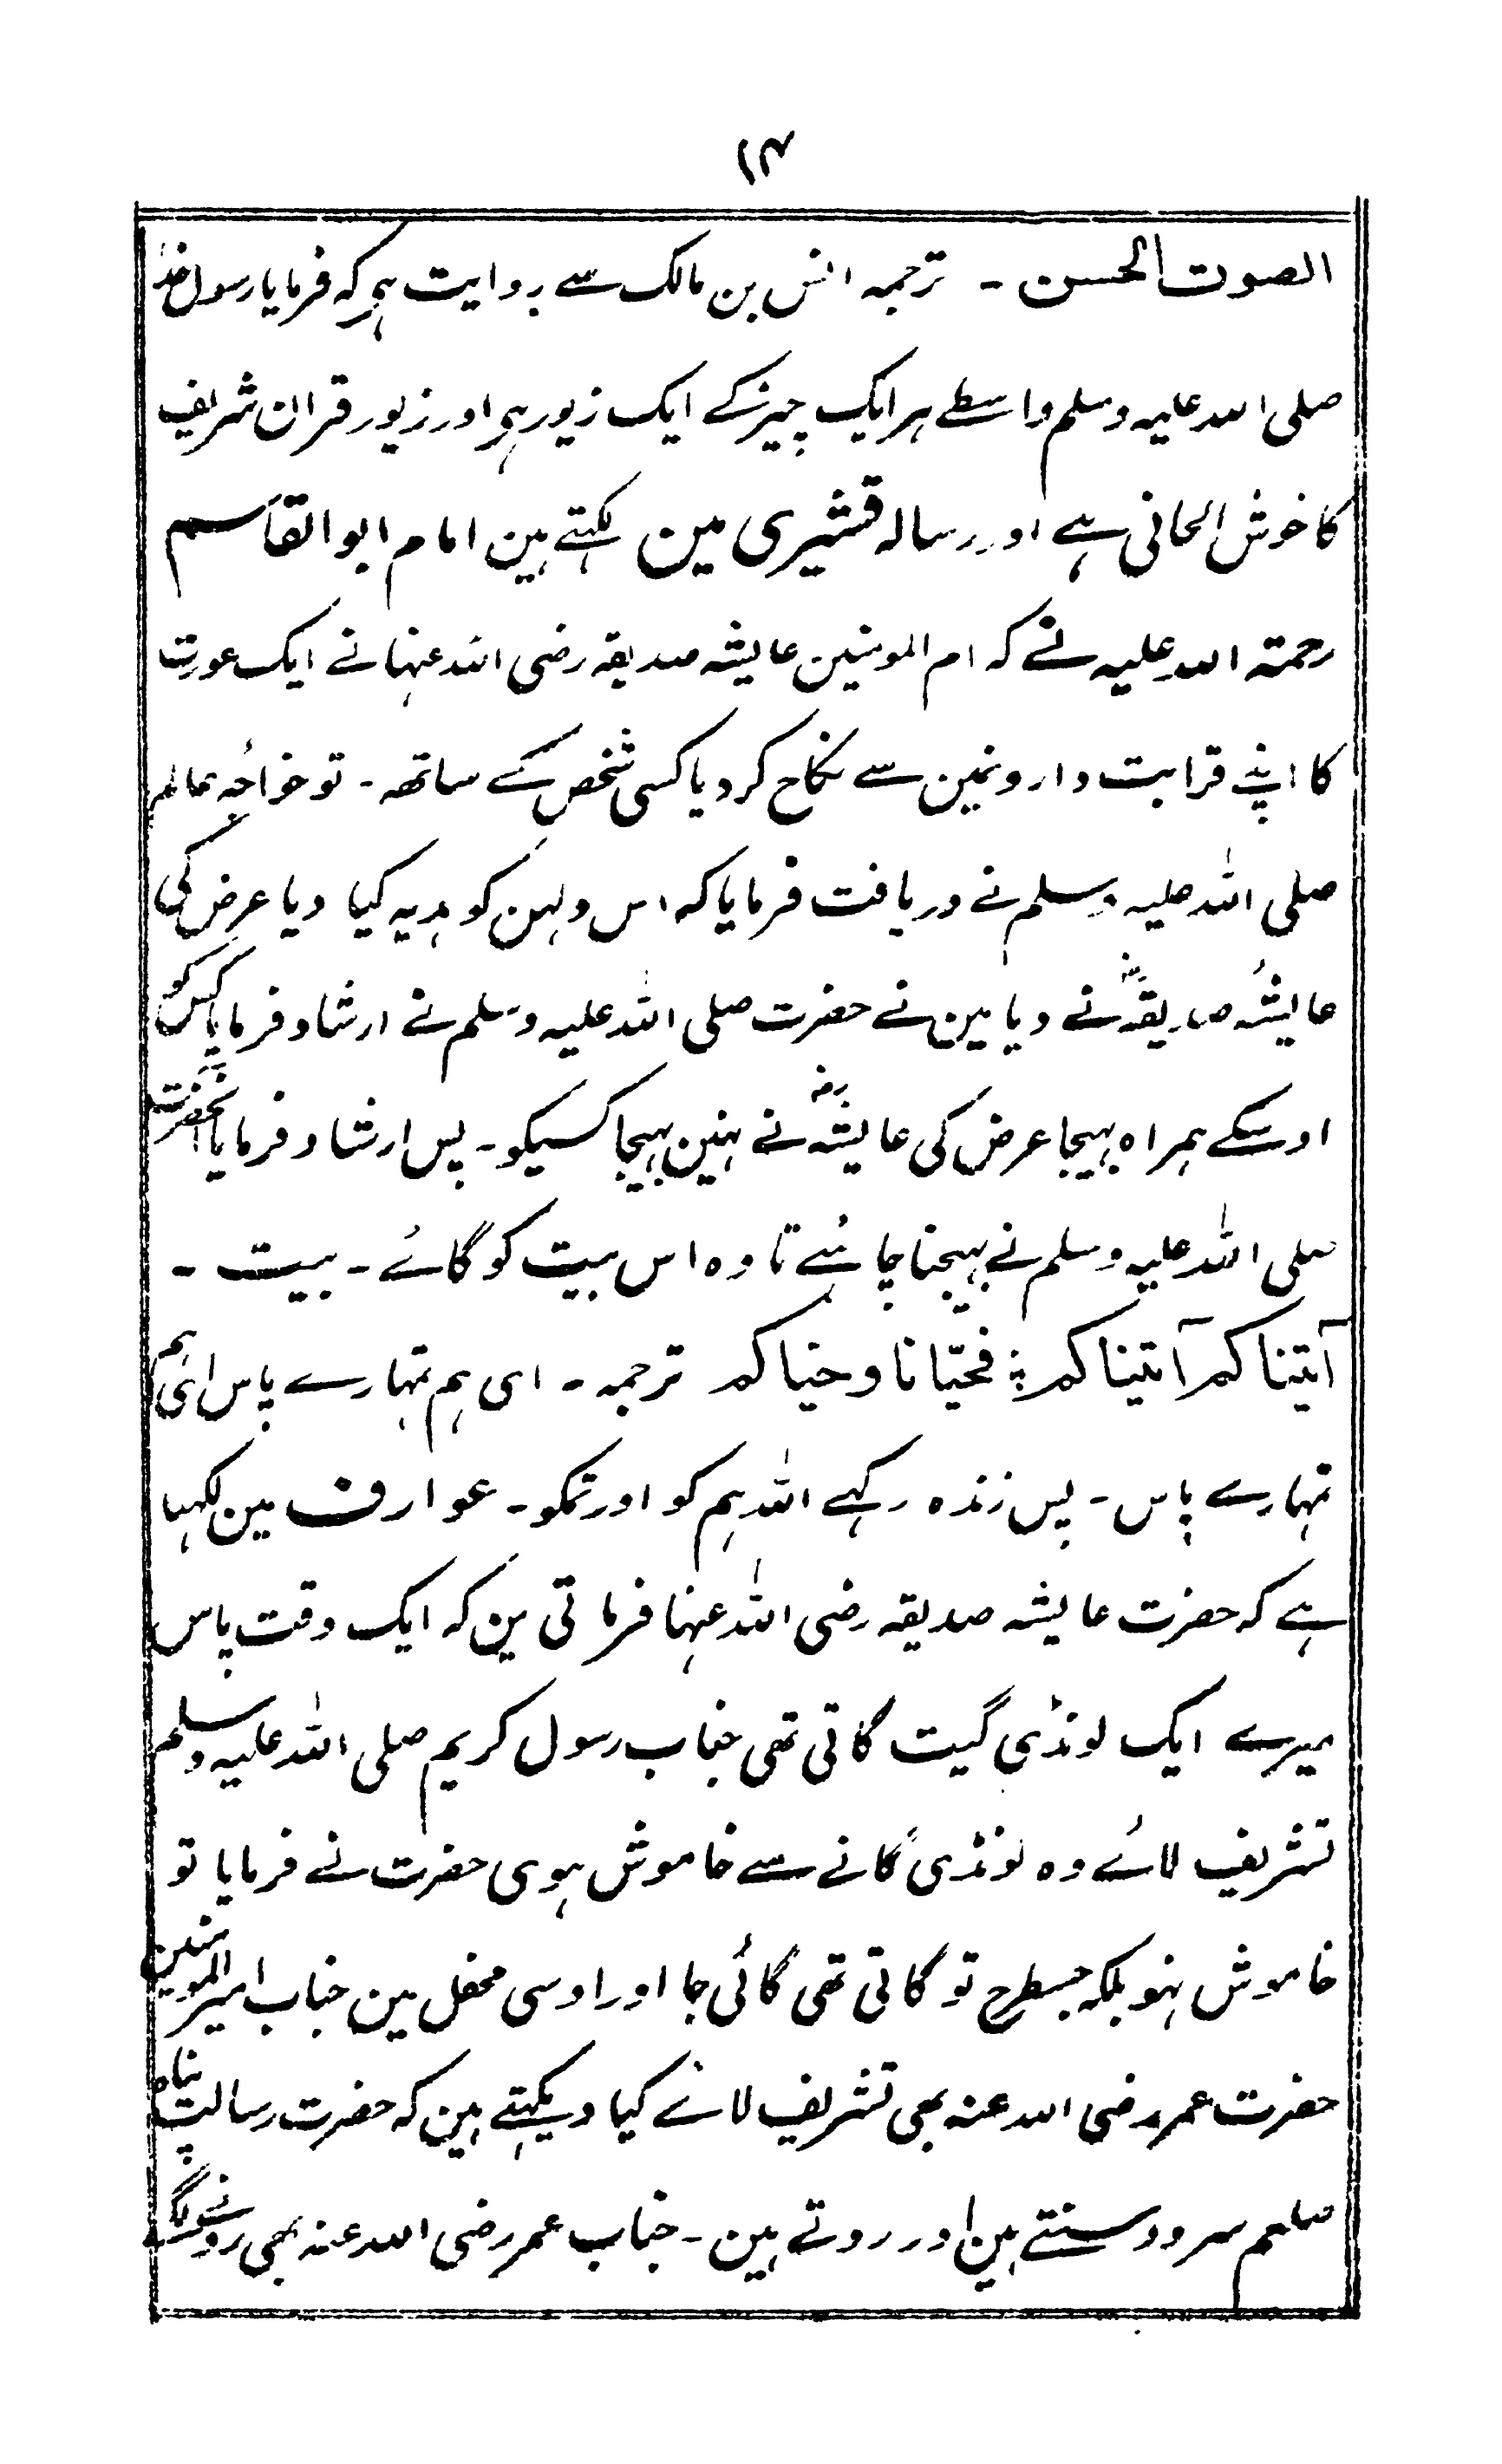 ۱۴
الصوت الحسن ۔ ترجمہ انس بن مالک سے روایت ہی کہ فرمایا رسول خدا
صلی اللہ علیہ وسلم واسطے ہر ایک چیز کے ایک زیور ہی اور زیور قران شریف
کا خوش الحانی ہے اور رسالہ قشیری مین لکہتے ہین امام ابوالقاسم
رحمۃ اللہ علیہ نے کہ ام المومنین عایشہ صدیقہ رضی اللہ عنہا نے ایک عورت
کا اپنے قرابت دارونمین سے نکاح کردیا کسی شخص کے ساتھہ ۔ تو خواجۂ عالم
صلی اللہ علیہ وسلم نے دریافت فرمایا کہ اس دلہن کو ہدیہ کیا دیا عرض کی
عایشہ صدیقہؓ نے دیا مین نے حضرت صلی اللہ علیہ وسلم نے ارشاد فرمایا کس کو
اوسکے ہمراہ بہیجا عرض کی عایشہؓ نے نہین بہیجا کسیکو ۔ پس ارشاد فرمایا آنحضرت
صلی اللہ علیہ وسلم نے بہیجنا چاہئے تا وہ اس بیت کو گائے ۔ بیت ۔
آتیناکم آتیناکم ؛ فحیّانا وحیاکم ترجمہ ۔ ای ہم تمہارے پاس ائی ہم
تمہارے پاس ۔ پس زندہ رکہے اللہ ہم کو اور تمکو ۔ عوارف مین لکہا
ہے کہ حضرت عایشہ صدیقہ رضی اللہ عنہا فرماتی ین کہ ایک وقت پاس
میرے ایک لونڈی گیت گاتی تھی جناب رسول کریم صلی اللہ علیہ وسلم
تشریف لائے وہ لونڈی گانے سے خاموش ہوی حضرت نے فرمایا تو
خاموش نہو بلکہ جسطرح تو گاتی تھی گائی جا اور اوسی محفل مین جناب امیر المومنین
حضرت عمر رضی اللہ عنہ بھی تشریف لائے کیا دیکہتے ہین کہ حضرت رسالت پناہ
صلعم سرود سنتے ہین اور روتے ہین ۔ جناب عمر رضی اللہ عنہ بھی رونے لگے